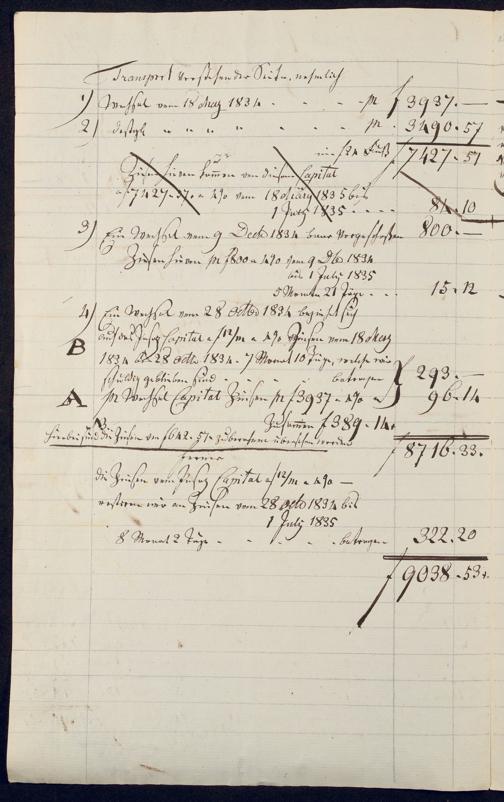 Transport vorstehender Seite, nehmlich
1) Wechsel vom 18 May 1834 - - - pr f 3937.—
2) desgl. " " " " " pr. 3490.57
im f 24 Fuß f 7427.57
Zinsen hievon kommen von diesem Capital
a f 7427.57. a 4% vom 18 März 1835 bis
1 July 1835 - - - - 84.10
3) Ein Wechsel vom 9 Decb 1834 baar vorgeschossen 800.—
Zinsen hievon pr f 800 a 4% vom 9 Db 1834
bis 1 July 1835
5 Monate 21 Täge - - 15.12
4) Ein Wechsel vom 28 octb 1834 bezieht sich
B auf das Capital a f 12/m a 4% Zinsen vom 18 May
1834 bis 28 octb 1834 - 7 Monat 10 Täge, welche wir
schuldig geblieben sind - - - betragen 293.—
A pr Wechsel Capital Zinsen pr f 3937 a 4% a 96.14
Zusammen f 389.14
Hierbei sind die Zinsen von f 642.57 zu berechnen übersehen worden
f 8716.33.
ferner
die Zinsen vom Capital a f 12/m a 4% —
restiren wir an Zinsen vom 28 octb 1834 bis
1 July 1835
8 Monat 2 Täge - - - - betragen 322.20
f 9038.53